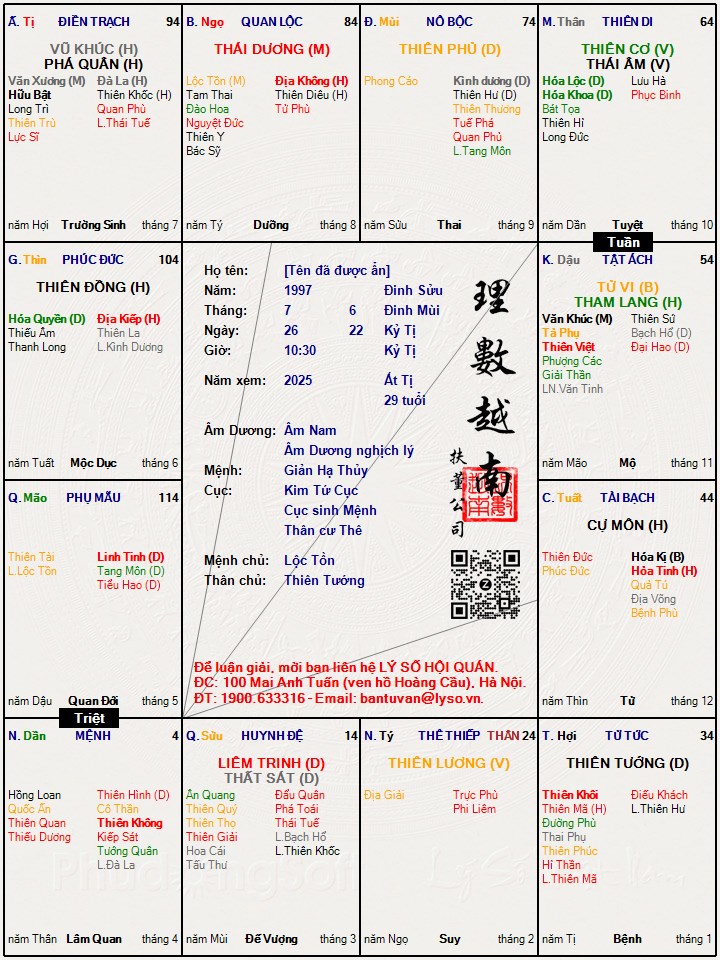 Ă. Tị ĐIỀN TRẠCH 94
VŨ KHÚC (H)
PHÁ QUÂN (H)
Văn Xương (M) Đà La (H)
Hữu Bật Thiên Khốc (H)
Long Trì Quan Phù
Thiên Trù L.Thái Tuế
Lực Sĩ
năm Hợi Trường Sinh tháng 7
B. Ngọ QUAN LỘC 84
THÁI DƯƠNG (M)
Lộc Tồn (M) Địa Không (H)
Tam Thai Thiên Diêu (H)
Đào Hoa Tử Phù
Nguyệt Đức
Thiên Y
Bác Sỹ
năm Tý Dưỡng tháng 8
Đ. Mùi NÔ BỘC 74
THIÊN PHỦ (D)
Phong Cáo Kình dương (D)
Thiên Hư (D)
Thiên Thương
Tuế Phá
Quan Phủ
L.Tang Môn
năm Sửu Thai tháng 9
M. Thân THIÊN DI 64
THIÊN CƠ (V)
THÁI ÂM (V)
Hóa Lộc (D) Lưu Hà
Hóa Khoa (D) Phục Binh
Bát Tọa
Thiên Hỉ
Long Đức
năm Dần Tuyệt tháng 10
Tuần
G. Thìn PHÚC ĐỨC 104
THIÊN ĐỒNG (H)
Hóa Quyền (D) Địa Kiếp (H)
Thiếu Âm Thiên La
Thanh Long L.Kình Dương
năm Tuất Mộc Dục tháng 6
Họ tên: [Tên đã được ẩn]
Năm: 1997 Đinh Sửu
Tháng: 7 6 Đinh Mùi
Ngày: 26 22 Kỷ Tị
Giờ: 10:30 Kỷ Tị
Năm xem: 2025 Ất Tị
29 tuổi
Âm Dương: Âm Nam
Âm Dương nghịch lý
Mệnh: Giản Hạ Thủy
Cục: Kim Tứ Cục
Cục sinh Mệnh
Thân cư Thê
Mệnh chủ: Lộc Tồn
Thân chủ: Thiên Tướng
理數越南
扶董公司
Để luận giải, mời bạn liên hệ LÝ SỐ HỘI QUÁN.
ĐC: 100 Mai Anh Tuấn (ven hồ Hoàng Cầu), Hà Nội.
ĐT: 1900.633316 - Email: bantuvan@lyso.vn.
K. Dậu TẬT ÁCH 54
TỬ VI (B)
THAM LANG (H)
Văn Khúc (M) Thiên Sứ
Tả Phụ Bạch Hổ (D)
Thiên Việt Đại Hao (D)
Phượng Các
Giải Thần
LN.Văn Tinh
năm Mão Mộ tháng 11
Q. Mão PHỤ MẪU 114
Thiên Tài Linh Tinh (D)
L.Lộc Tồn Tang Môn (D)
Tiểu Hao (D)
năm Dậu Quan Đới tháng 5
Triệt
C. Tuất TÀI BẠCH 44
CỰ MÔN (H)
Thiên Đức Hóa Kị (B)
Phúc Đức Hỏa Tinh (H)
Quả Tú
Địa Võng
Bệnh Phù
năm Thìn Tử tháng 12
N. Dần MỆNH 4
Hồng Loan Thiên Hình (D)
Quốc Ấn Cô Thần
Thiên Quan Thiên Không
Thiếu Dương Kiếp Sát
Tướng Quân
L.Đà La
năm Thân Lâm Quan tháng 4
Q. Sửu HUYNH ĐỆ 14
LIÊM TRINH (D)
THẤT SÁT (D)
Ân Quang Đẩu Quân
Thiên Quý Phá Toái
Thiên Thọ Thái Tuế
Thiên Giải L.Bạch Hổ
Hoa Cái L.Thiên Khốc
Tấu Thư
năm Mùi Đế Vượng tháng 3
N. Tý THÊ THIẾP THÂN 24
THIÊN LƯƠNG (V)
Địa Giải Trực Phù
Phi Liêm
năm Ngọ Suy tháng 2
T. Hợi TỬ TỨC 34
THIÊN TƯỚNG (D)
Thiên Khôi Điếu Khách
Thiên Mã (H) L.Thiên Hư
Đường Phù
Thai Phụ
Thiên Phúc
Hỉ Thần
L.Thiên Mã
năm Tị Bệnh tháng 1